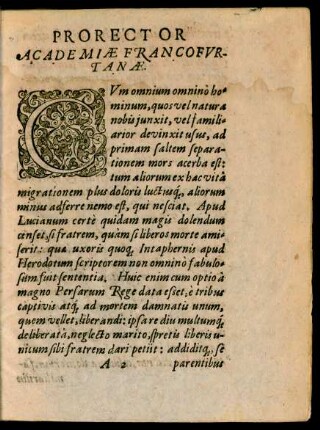 PRORECTOR
ACADEMIÆ FRANCOFVR-
TANÆ.
CVm omnium omninò ho-
minum, quos vel natura
nobis junxit, vel famili-
arior devinxit usus, ad
primam saltem separa-
tionem mors acerba est:
tum aliorum ex hac vitâ
migrationem plus doloris luctusq́, aliorum
minus adferre nemo est, qui nesciat. Apud
Lucianum certè quidam magis dolendum
censet, si fratrem, quàm si liberos morte ami-
serit: quæ uxoris quoq́, Intaphernis apud
Herodotum scriptorem non omninò fabulo-
sum fuit sententia. Huic enim cum optio à
magno Persarum Rege data esset, è tribus
captivis atq́, ad mortem damnatis unum,
quem vellet, liberandi: ipsa re diu multumq́,
deliberatâ, neglecto marito, spretis liberis u-
nicum sibi fratrem dari petiit: addiditq́, se
A 2 parentibus